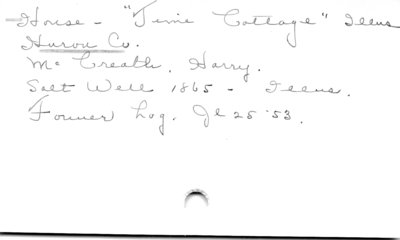 House - "Time Cottage" Illus
Huron Co.
Mc Creath, Harry.
Salt Well 1865 - Illus.
Former Log. Je 25 '53.